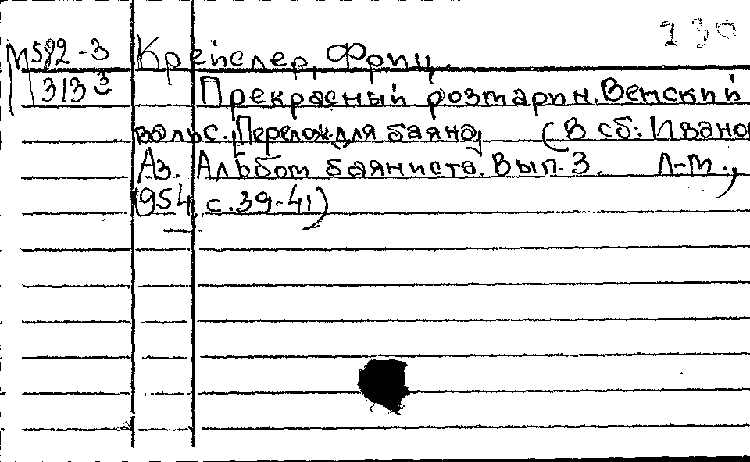 130
М592-3 Крейслер, Фриц.
313³ Прекрасный розмарин. Венский
вальс. Перелож. для баяна (В сб: Ивано
Аз. Альбом баяниста. Вып. 3. Л-М.,
1954, с. 39-41)